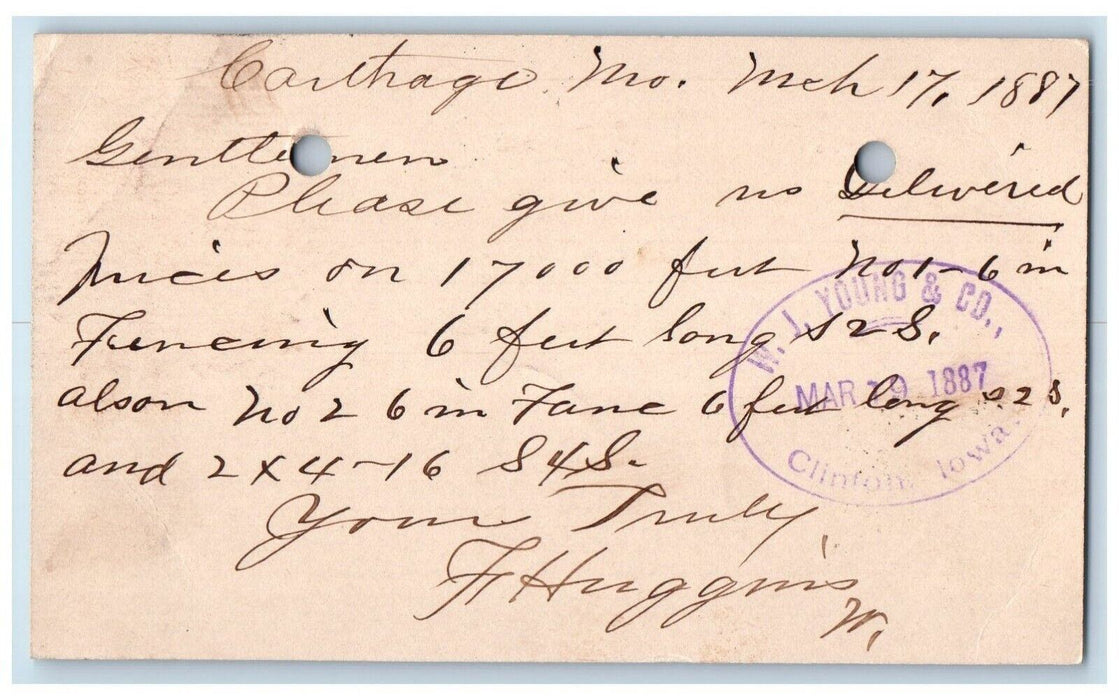 Carthage, Mo. Mch 17, 1887
Gentlemen
Please give us Delivered
Prices on 17000 feet No 1 - 6 in
Fencing 6 feet long S2S.
also on No 2 6 in Fanc 6 feet long S2S.
and 2x4-16 S4S.
Yours Truly
F Huggins
W.
W. J. YOUNG & CO.,
MAR 19 1887
Clinton, Iowa.